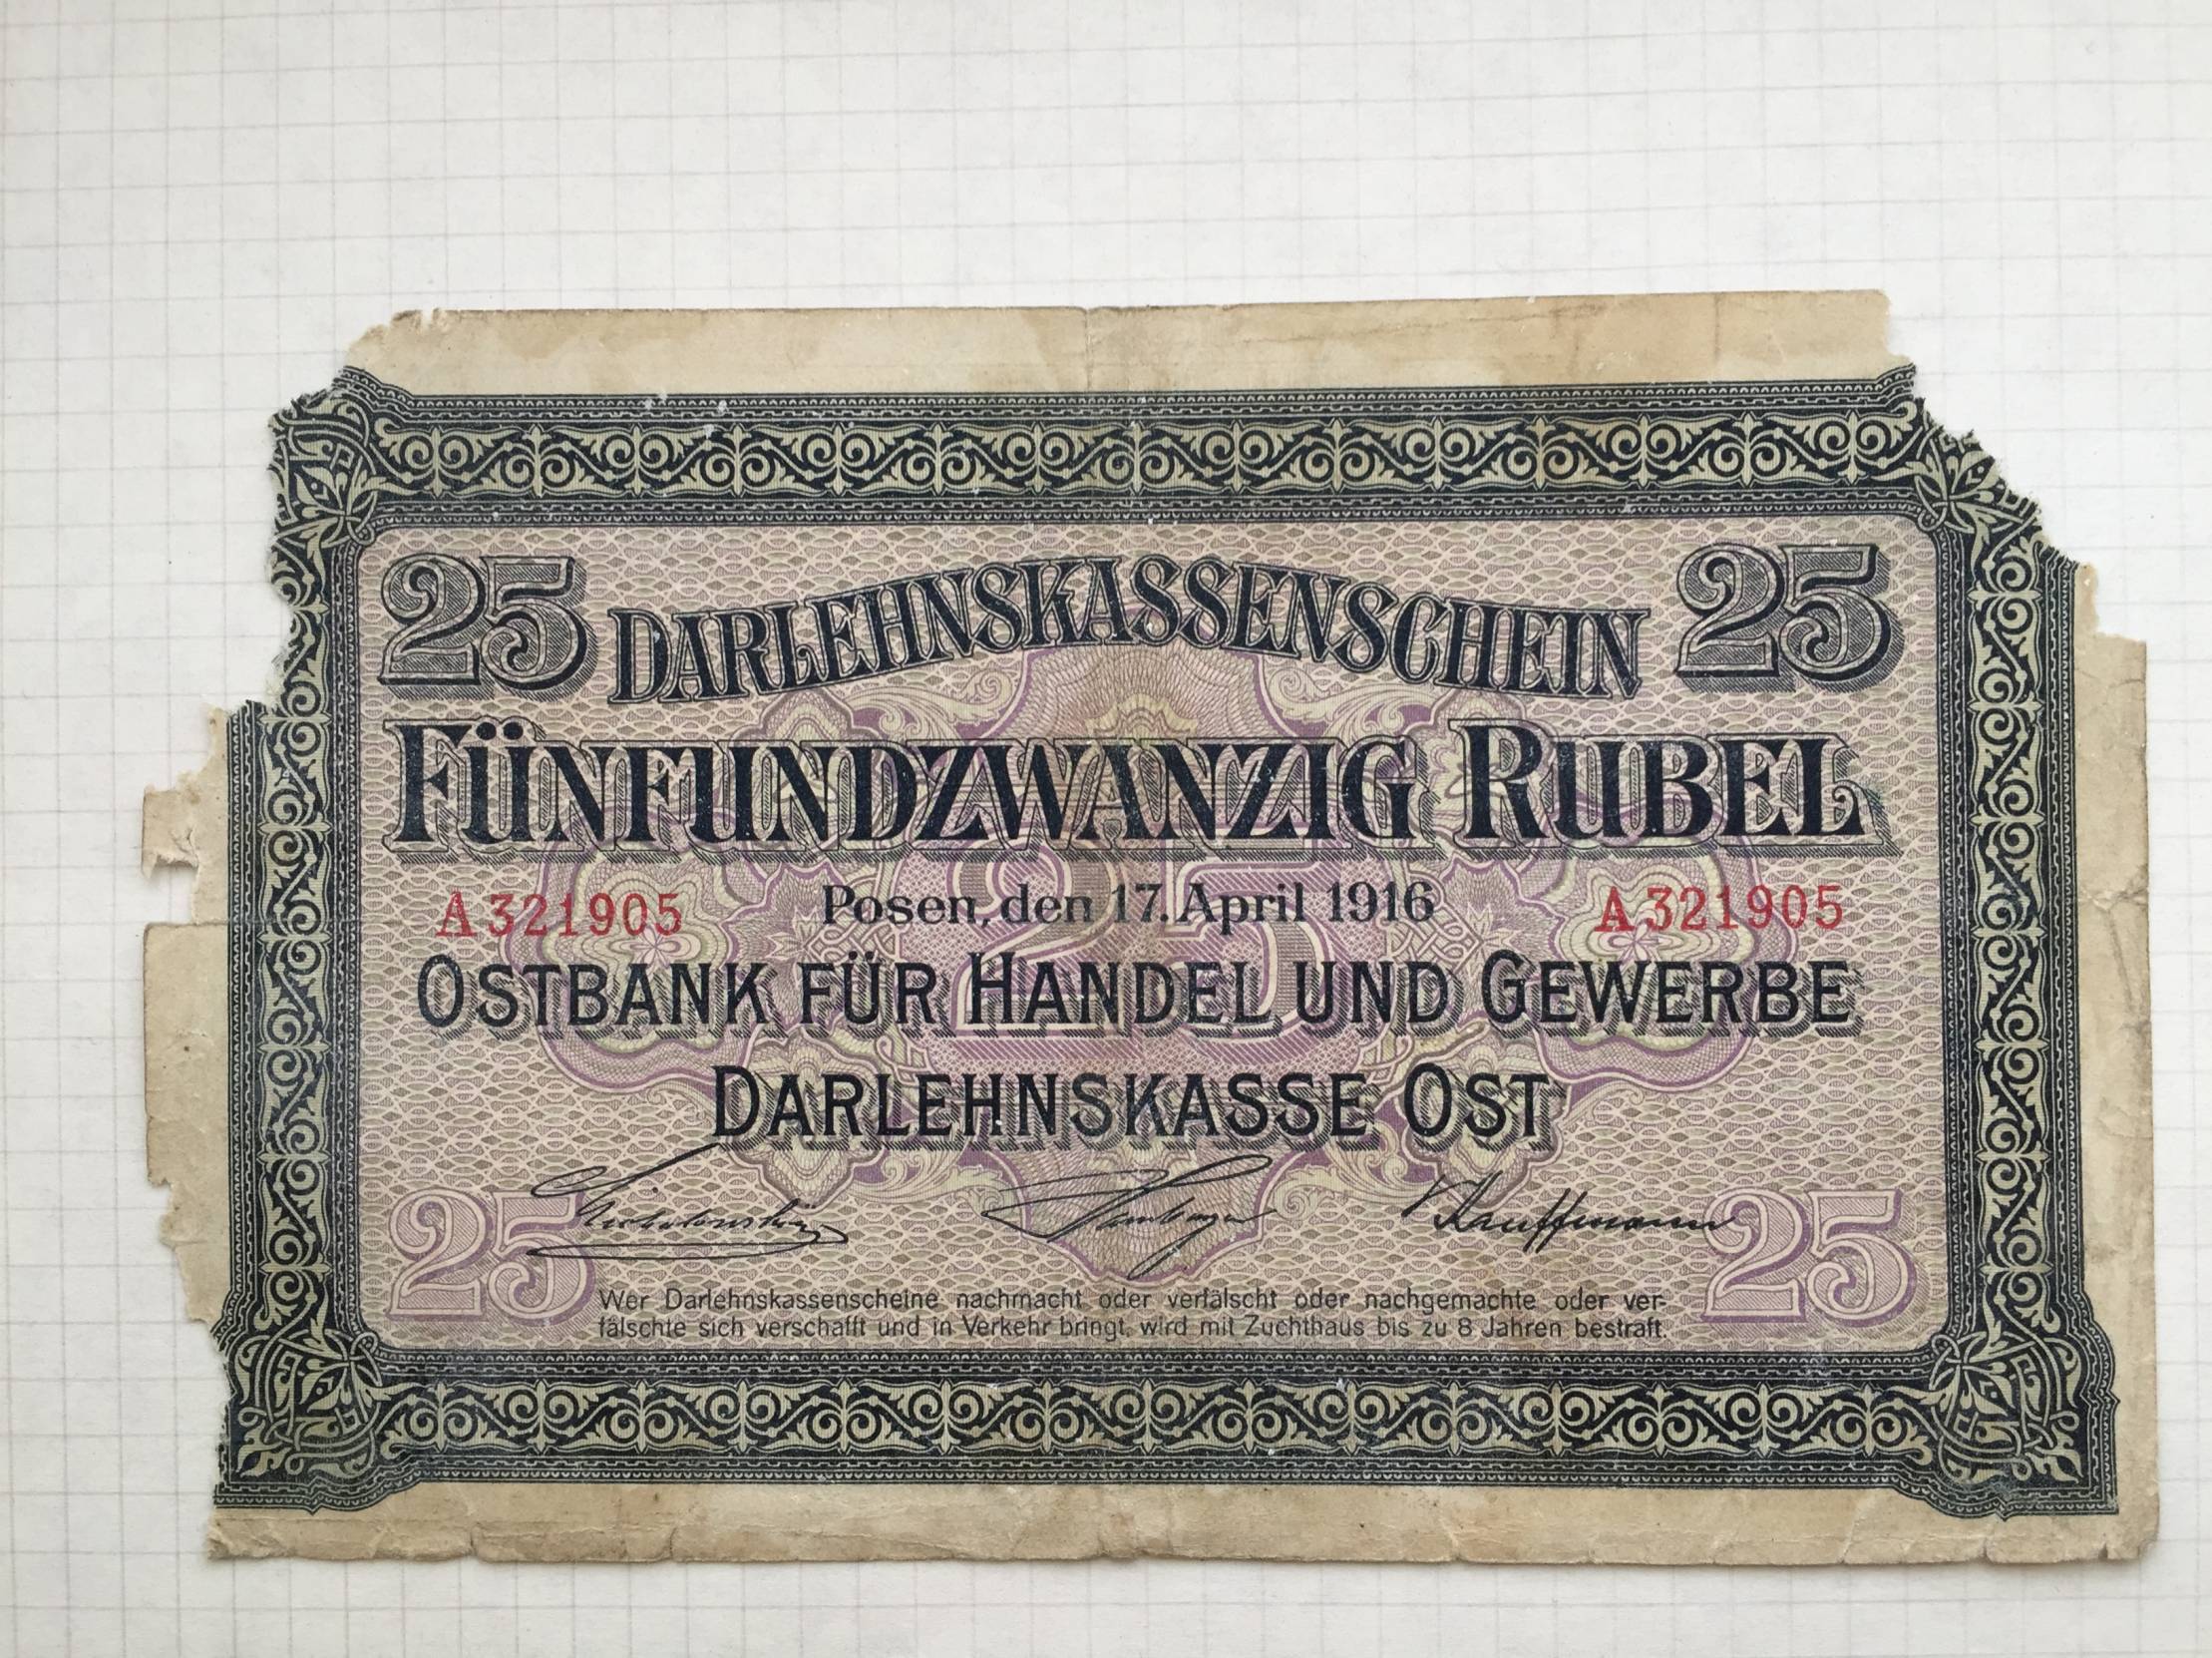 25 DARLEHNSKASSENSCHEIN 25
FÜNFUNDZWANZIG RUBEL
A321905 Posen, den 17. April 1916 A321905
25
OSTBANK FÜR HANDEL UND GEWERBE
DARLEHNSKASSE OST
Kauffmann
25 25
Wer Darlehnskassenscheine nachmacht oder verfälscht oder nachgemachte oder ver-
fälschte sich verschafft und in Verkehr bringt, wird mit Zuchthaus bis zu 8 Jahren bestraft.